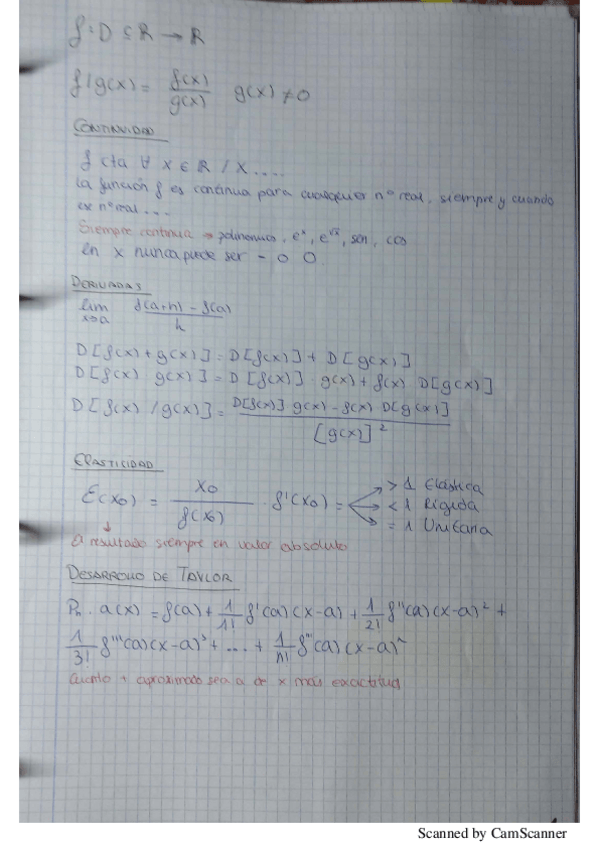 f: D ⊆ R → R
f/g(x) = f(x)/g(x)  g(x) ≠ 0
CONTINUIDAD
f cta ∀ x ∈ R / x ....
la función f es continua para cualquier nº real, siempre y cuando
ex nº real ...
Siempre continua → polinomios, eˣ, sen, cos
ln x nunca puede ser - o 0
DERIVADAS
lim x→a f(a+h) - f(a) / h
D[f(x) + g(x)] = D[f(x)] + D[g(x)]
D[f(x) g(x)] = D[f(x)] · g(x) + f(x) D[g(x)]
D[f(x)/g(x)] = D[f(x)] g(x) - f(x) D[g(x)] / [g(x)]²
ELASTICIDAD
E(x0) = x0 / f(x0) · f'(x0) =
> 1 Elástica
< 1 Rígida
= 1 Unitaria
El resultado siempre en valor absoluto
DESARROLLO DE TAYLOR
Pn · a(x) = f(a) + 1/1! f'(a)(x-a) + 1/2! f''(a)(x-a)² +
1/3! f'''(a)(x-a)³ + ... + 1/n! fⁿ(a)(x-a)ⁿ
Cuanto + aproximado sea a de x más exactitud
Scanned by CamScanner